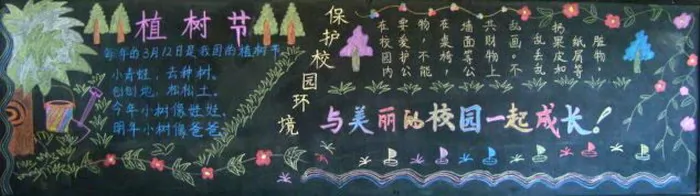 植树节
每年的3月12日是我国的植树节
小青蛙，去种树。
刨刨地，松松土。
今年小树像娃娃。
明年小树像爸爸。
保护校园环境
在校园内
要爱护公
物，不能
在桌椅，
墙面等公
共财物上
乱画。不
乱丢乱
扔果皮和
纸屑等
脏物
与美丽的校园一起成长！